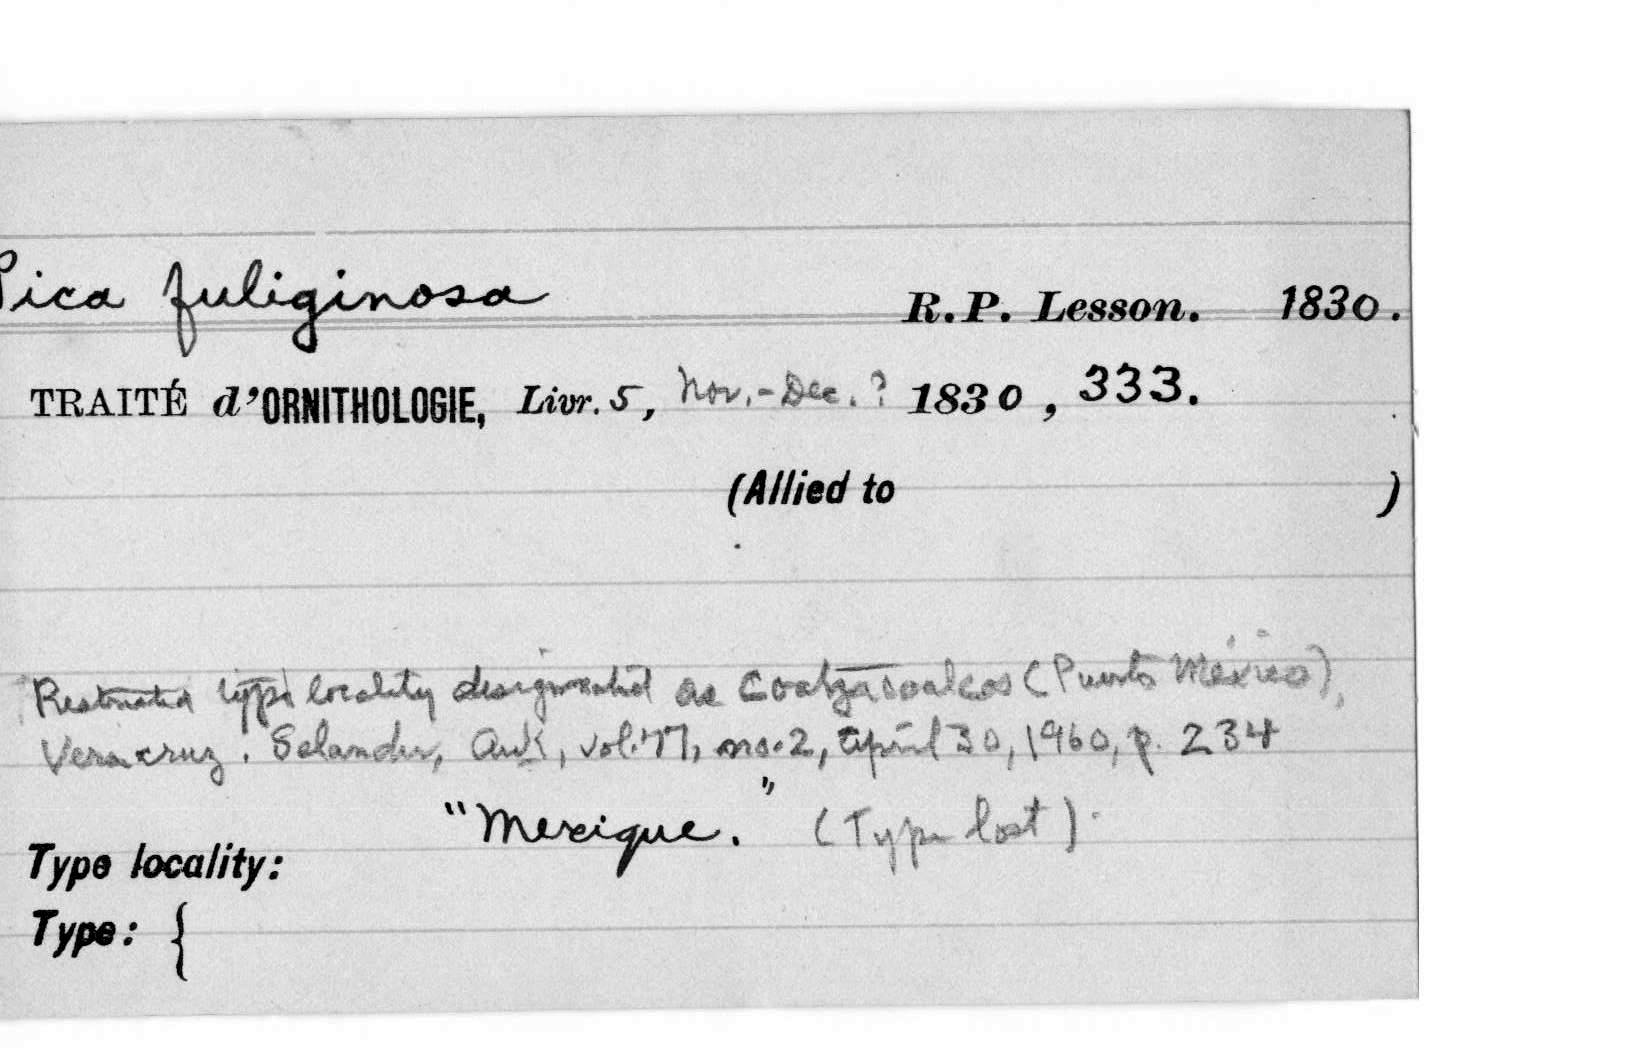 Pica fuliginosa R.P. Lesson. 1830.
TRAITÉ d'ORNITHOLOGIE, Livr. 5, Nov.-Dec.? 1830, 333.
(Allied to )
Restricted type locality designated as Coatzacoalcos (Puerto México),
Veracruz. Selander, Auk, vol. 77, no. 2, April 30, 1960, p. 234
"Mexique." (Type lost).
Type locality:
Type: {